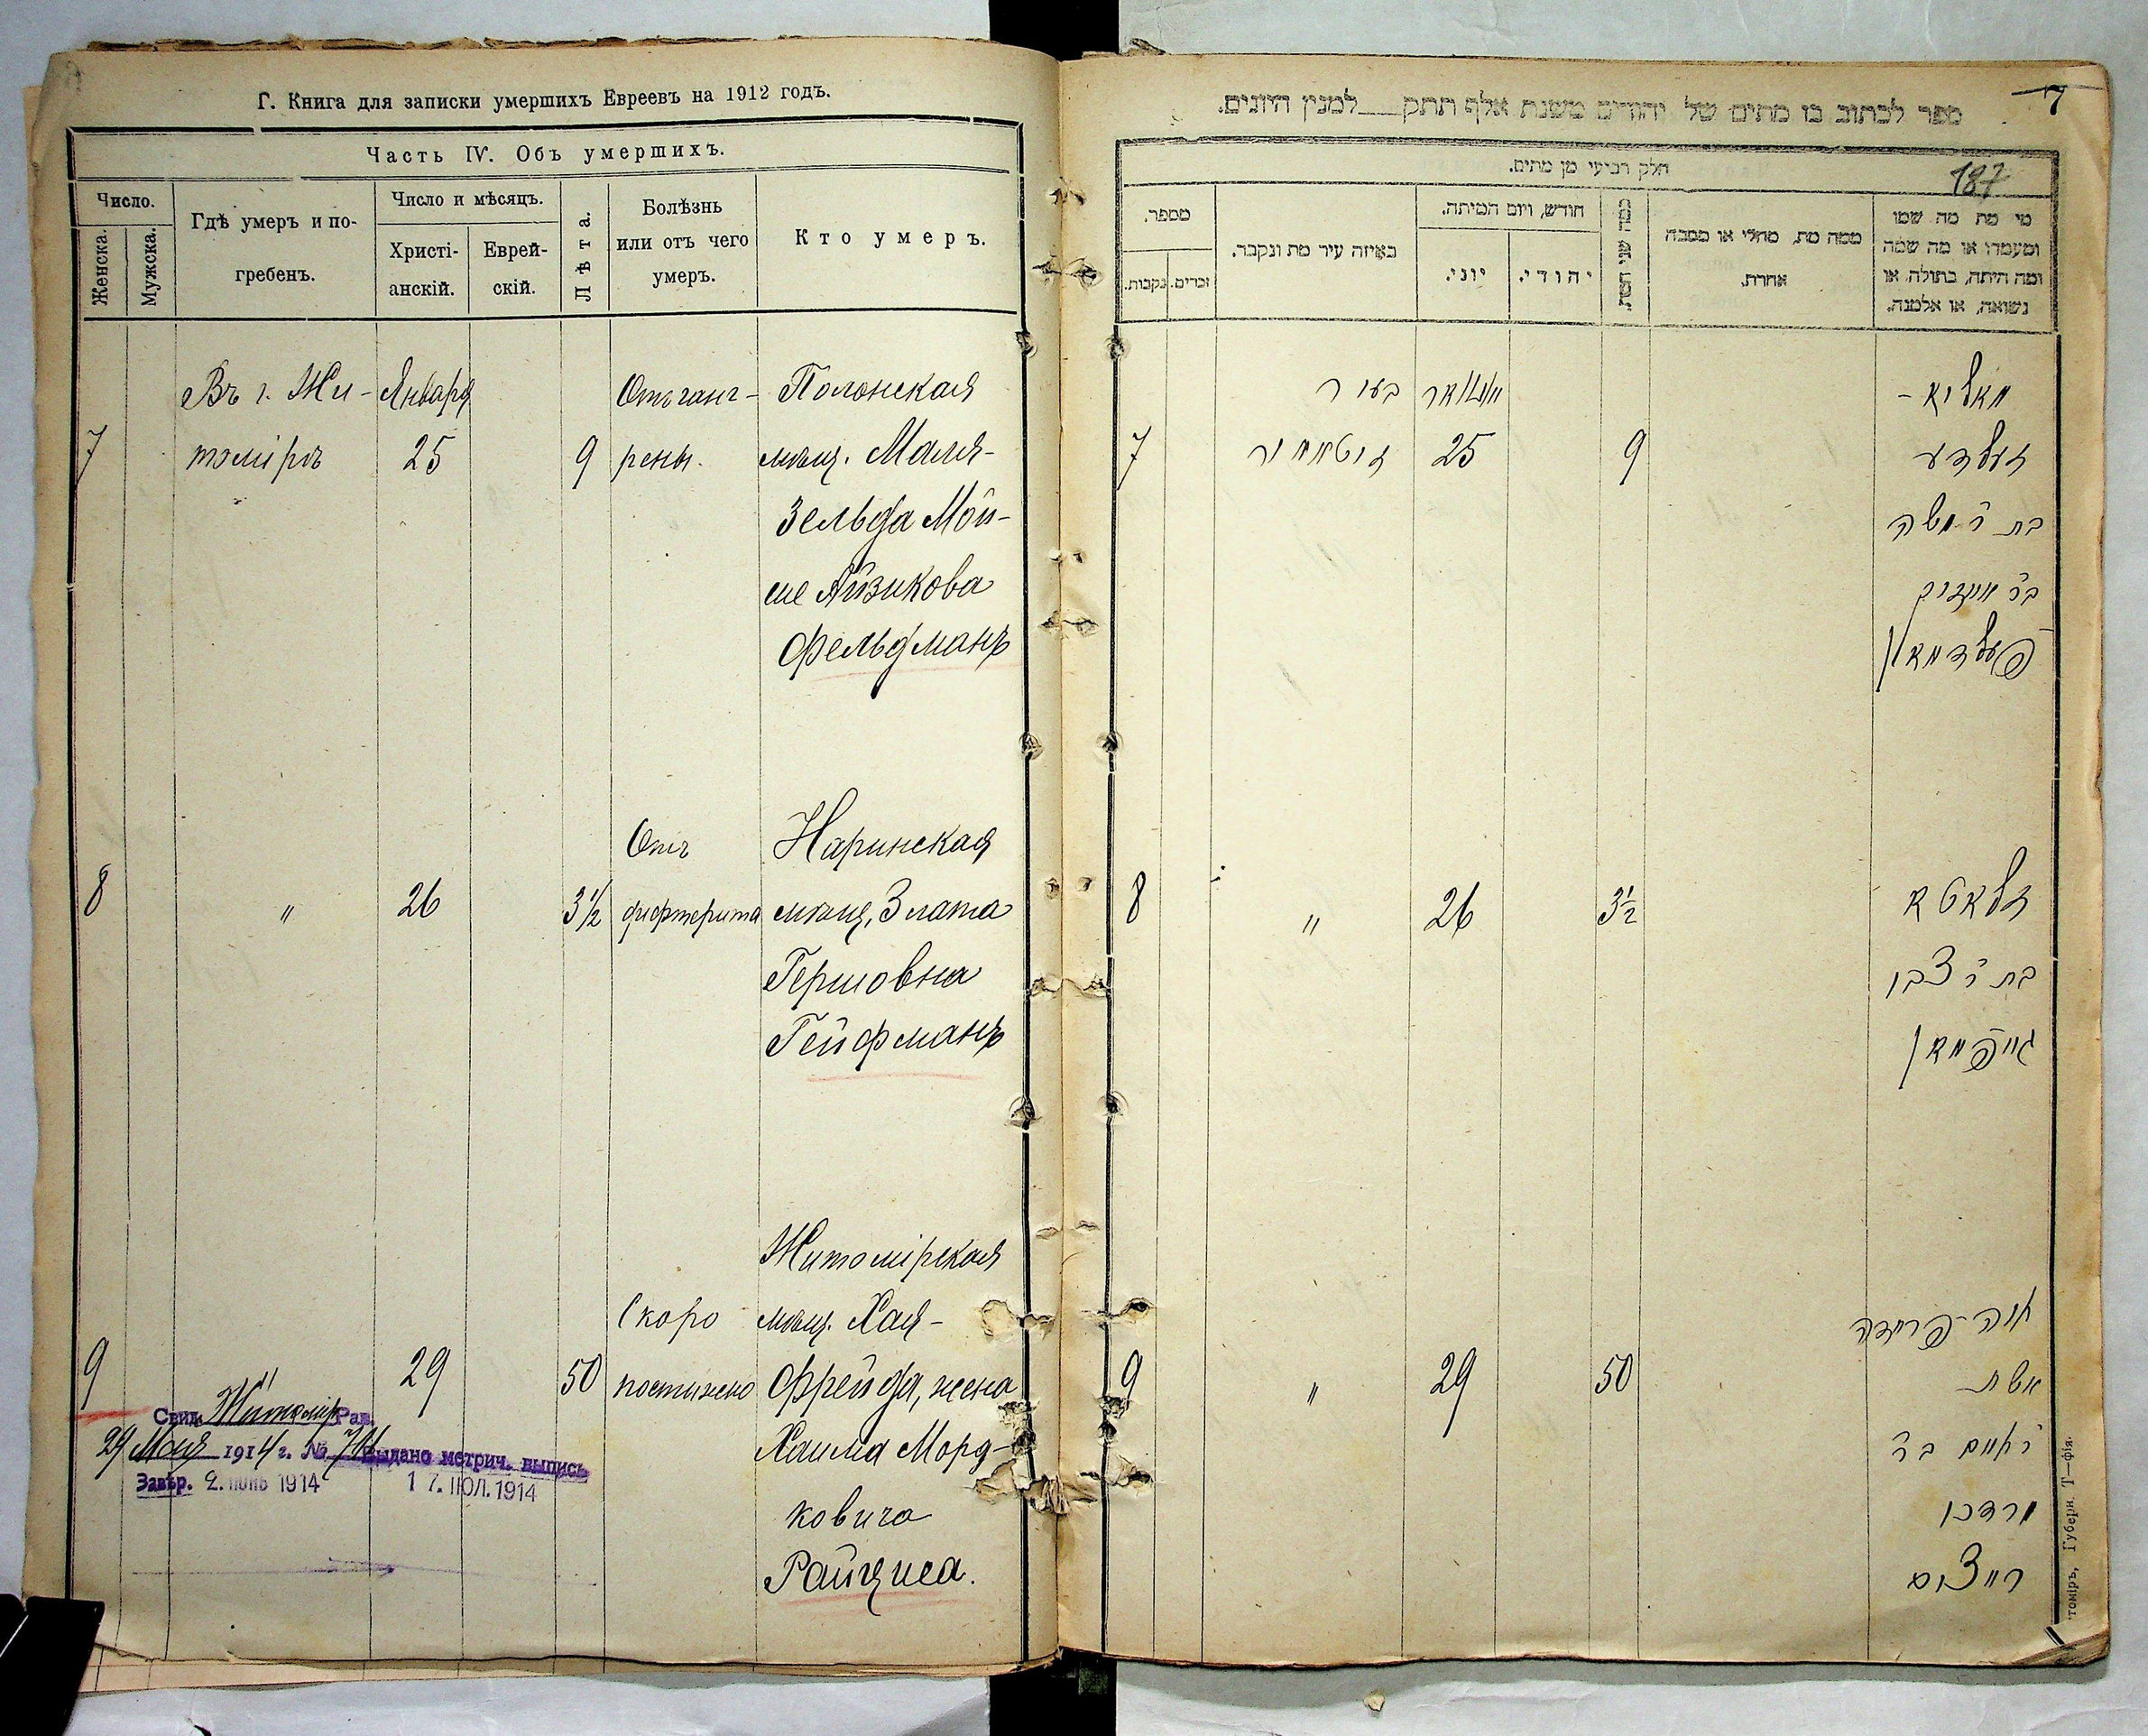 Г. Книга для записки умершихъ Евреевъ на 1912 годъ.
Часть IV. Объ умершихъ.
Число.
Женска.
Мужска.
Гдѣ умеръ и по-
гребенъ.
Число и мѣсяцъ.
Христі-
анскій.
Еврей-
скій.
Лѣта.
Болѣзнь
или отъ чего
умеръ.
Кто умеръ.
Въ г. Жи- Января Отъ ганг- Полонская
7 томірѣ 25 9 рены. мѣщ. Маля-
Зельда Мой-
ше Айзикова
Фельдманъ
Отъ Наринская
8 " 26 3½ дифтерита мѣщ. Злата
Гершовна
Гейфманъ
Житомірская
Скоро мѣщ. Хая-
9 " 29 50 постижно Фрейда, жена
Хаима Морд-
ковича
Райциса.
Свид. Житомір. Рав.
29 Мая 1914 г. №
Выдано метрич. выпись
Завѣр. 2. июнь 1914
17. ІЮЛ. 1914
7
ספר לכתוב בו מתים של יהודים משנת אלף תתק למנין היונים.
187
חלק רביעי מן מתים.
מספר.
נקבות.
זכרים.
באיזה עיר מת ונקבר.
חודש, ויום המיתה.
יוני.
יהודי.
כמה שני המת.
ממה מת, מחלי או מסבה
אחרת.
מי מת מה שמו
ומעמדו או מה שמה
ומה היתה, בתולה, או
נשואה, או אלמנה.
בעיר יאנואר מאליא-
7 זיטאמיר 25 9 זעלדע
בת ר' משה
בר אייזיק
פעלדמאן
8 " 26 3½ זלאטא
בת ר' צבי
גייפמאן
חיה-פריידה
9 " 29 50 אשת
ר' חיים בר
מרדכי
רייצים
томіръ, Губерн. Т—фія.